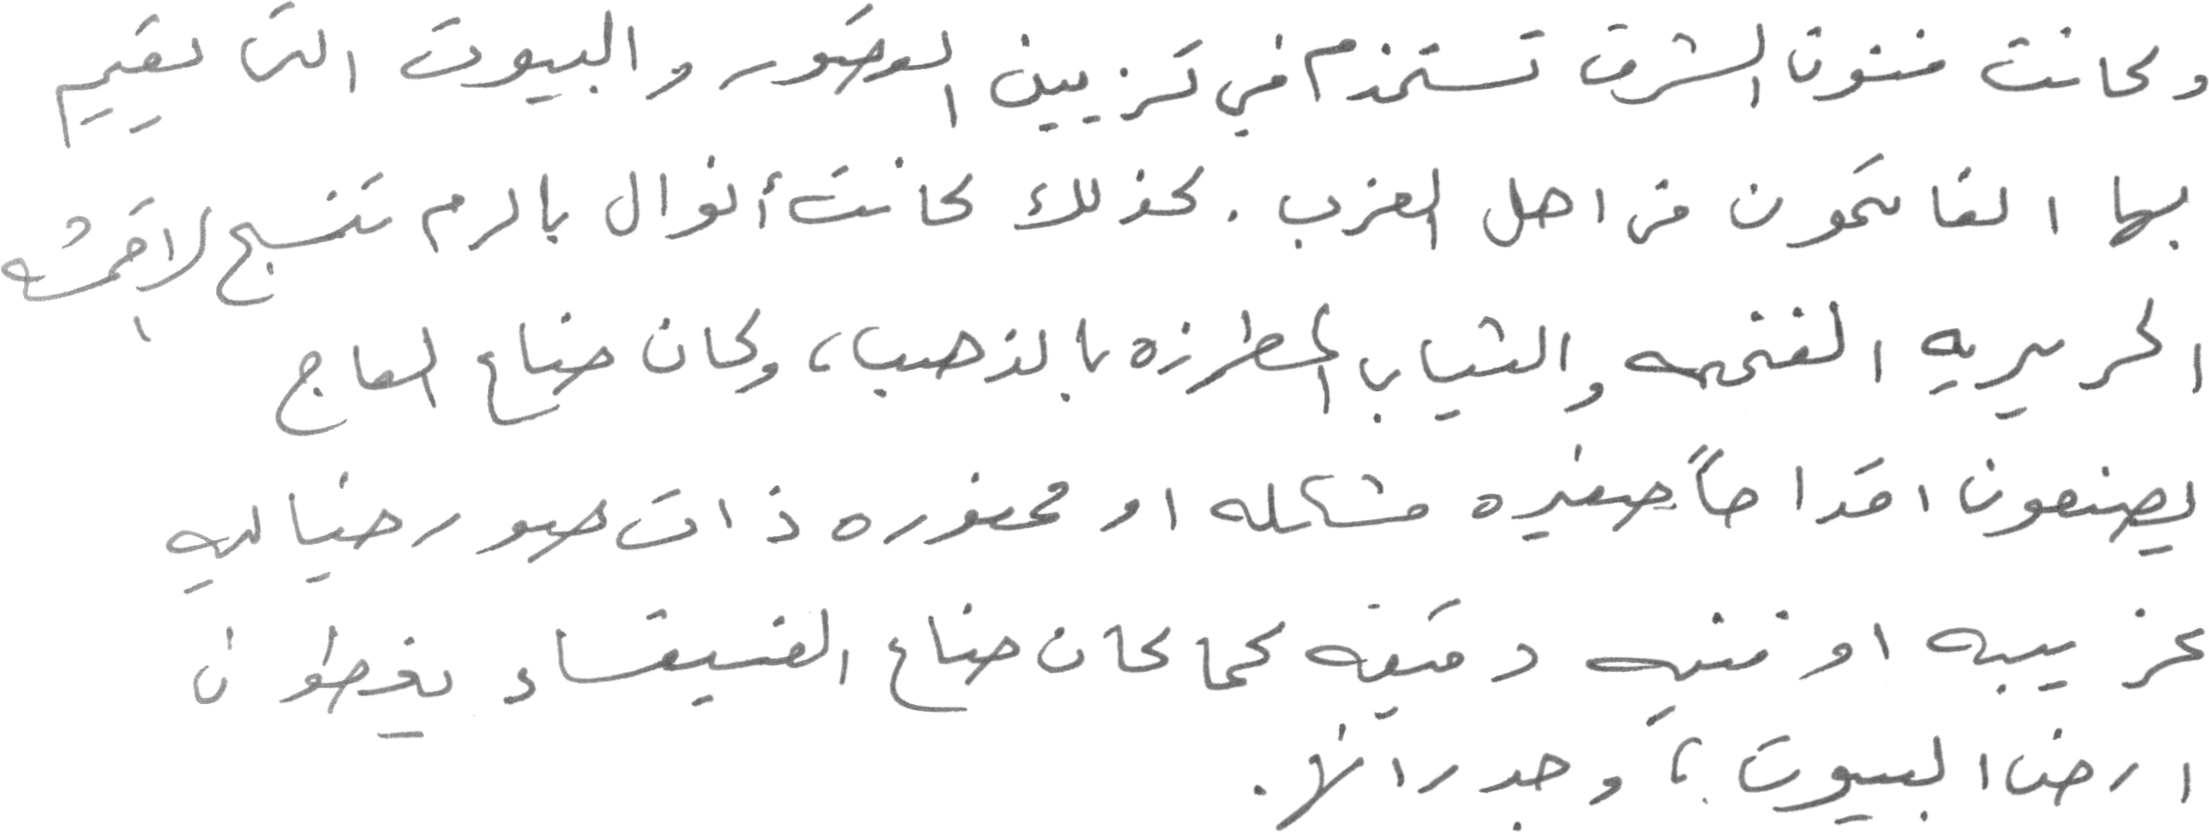 وكانت فنون الشرق تستخدم في تزيين القصور والبيوت التي يقيم
بها الفاتحون من اهل الغرب. كذلك كانت أنوال بالرم تنسج الاقمشه
الحريريه الفخمه والثياب المطرزه بالذهب، وكان صناع العاج
يصنعون اقداحاً صغيره مشكله او محفوره ذات صور خياليه
غريبه او فنيه دقيقه كما كان صناع الفسيفساء يغطون
ارض البيوت، وجدرانها.